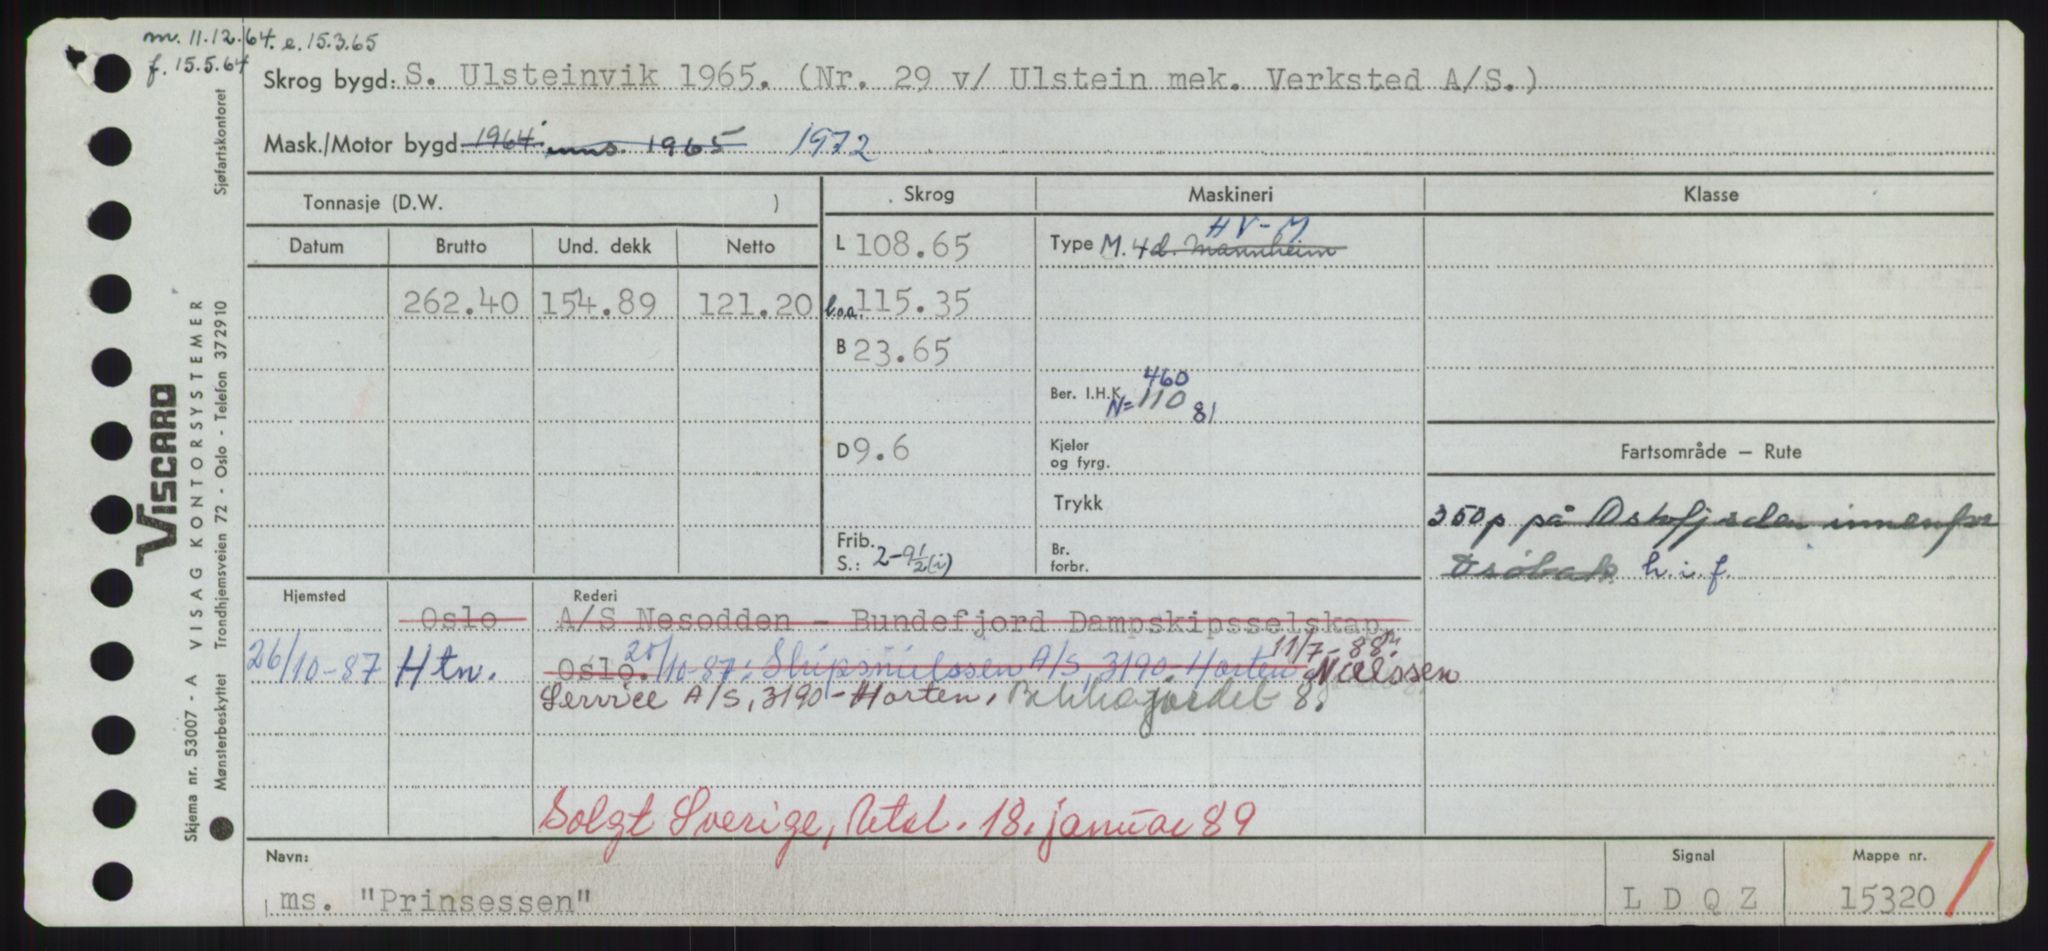 m. 11.12.64. e. 15.3.65
f. 15.5.64
Skrog bygd: S. Ulsteinvik 1965. (Nr. 29 v/ Ulstein mek. Verksted A/S.)
Mask./Motor bygd 1964 inns. 1965 1972
Tonnasje (D.W. )
Skrog
Maskineri
Klasse
Datum Brutto Und. dekk Netto
262.40 154.89 121.20
L 108.65
l.o.a. 115.35
B 23.65
D 9.6
Frib.
S.: 2-9½(i)
HV-M
Type M. 4d. Mannheim
460
Ber. I.H.K. 110
N= 81
Kjeler
og fyrg.
Trykk
Br.
forbr.
Fartsområde — Rute
350p på Oslofjorden innenfor
Drøbak h.i.f.
Hjemsted
Rederi
Oslo A/S Nesodden - Bundefjord Dampskipsselskap,
26/10-87 Htn. Oslo. 25/10-87: Skipsnielssen A/S, 3190-Horten 11/7-88: Nielssen
Service A/S, 3190-Horten, 8.
Solgt Sverige, Utsl. 18. januar 89
Navn:
ms. "Prinsessen"
Signal
L D Q Z
Mappe nr.
15320
Sjøfartskontoret
VISCARD
VISAG KONTORSYSTEMER
Skjema nr. 53007 - A
Mønsterbeskyttet Trondhjemsveien 72 - Oslo - Telefon 372910